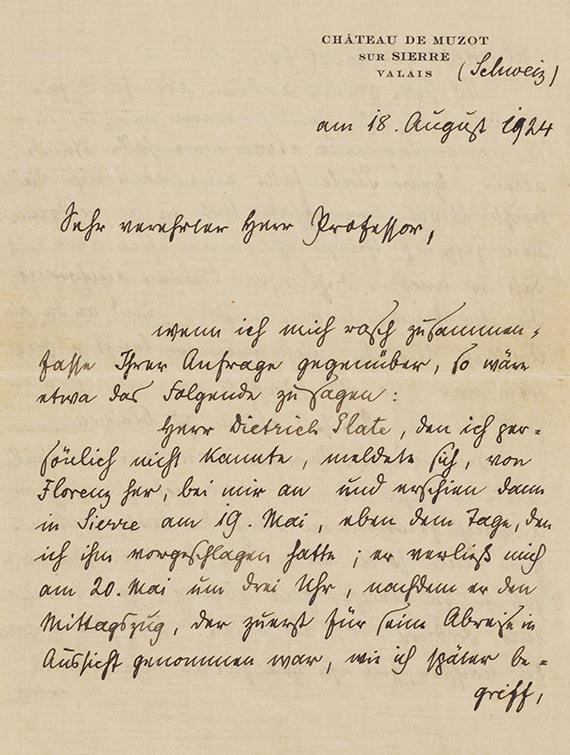 CHÂTEAU DE MUZOT
SUR SIERRE
VALAIS (Schweiz)
am 18. August 1924
Sehr verehrter Herr Professor,
wenn ich mich rasch zusammen-
fasse Ihrer Anfrage gegenüber, so wäre
etwa das Folgende zu sagen:
Herr Dietrich Plate, den ich per-
sönlich nicht kannte, meldete sich, von
Florenz her, bei mir an und erschien dann
in Sierre am 19. Mai, eben dem Tage, den
ich ihm vorgeschlagen hatte; er verließ mich
am 20. Mai um drei Uhr, nachdem er den
Mittagszug, der zuerst für seine Abreise in
Aussicht genommen war, wie ich später be-
griff,